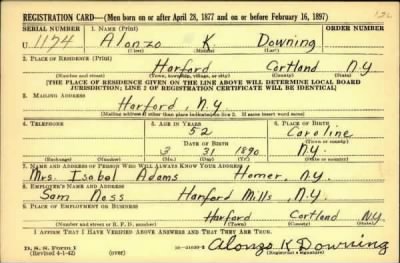 REGISTRATION CARD—(Men born on or after April 28, 1877 and on or before February 16, 1897)
SERIAL NUMBER 1. NAME (Print) ORDER NUMBER
U 1174 Alonzo K Downing
(First) (Middle) (Last)
2. PLACE OF RESIDENCE (Print)
Harford Cortland N.Y
(Number and street) (Town, township, village, or city) (County) (State)
[THE PLACE OF RESIDENCE GIVEN ON THE LINE ABOVE WILL DETERMINE LOCAL BOARD
JURISDICTION; LINE 2 OF REGISTRATION CERTIFICATE WILL BE IDENTICAL]
3. MAILING ADDRESS
Harford, N.Y.
(Mailing address if other than place indicated on line 2. If same insert word same)
4. TELEPHONE 5. AGE IN YEARS 6. PLACE OF BIRTH
52 Caroline
DATE OF BIRTH (Town or county)
3 31 1890 N.Y.
(Exchange) (Number) (Mo.) (Day) (Yr.) (State or country)
7. NAME AND ADDRESS OF PERSON WHO WILL ALWAYS KNOW YOUR ADDRESS
Mrs. Isabel Adams Homer, N.Y.
8. EMPLOYER'S NAME AND ADDRESS
Sam Ross Harford Mills, N.Y.
9. PLACE OF EMPLOYMENT OR BUSINESS
Harford Cortland N.Y.
(Number and street or R. F. D. number) (Town) (County) (State)
I AFFIRM THAT I HAVE VERIFIED ABOVE ANSWERS AND THAT THEY ARE TRUE.
D. S. S. Form 1
(Revised 4-1-42) (over) Alonzo K Downing
(Registrant's signature)